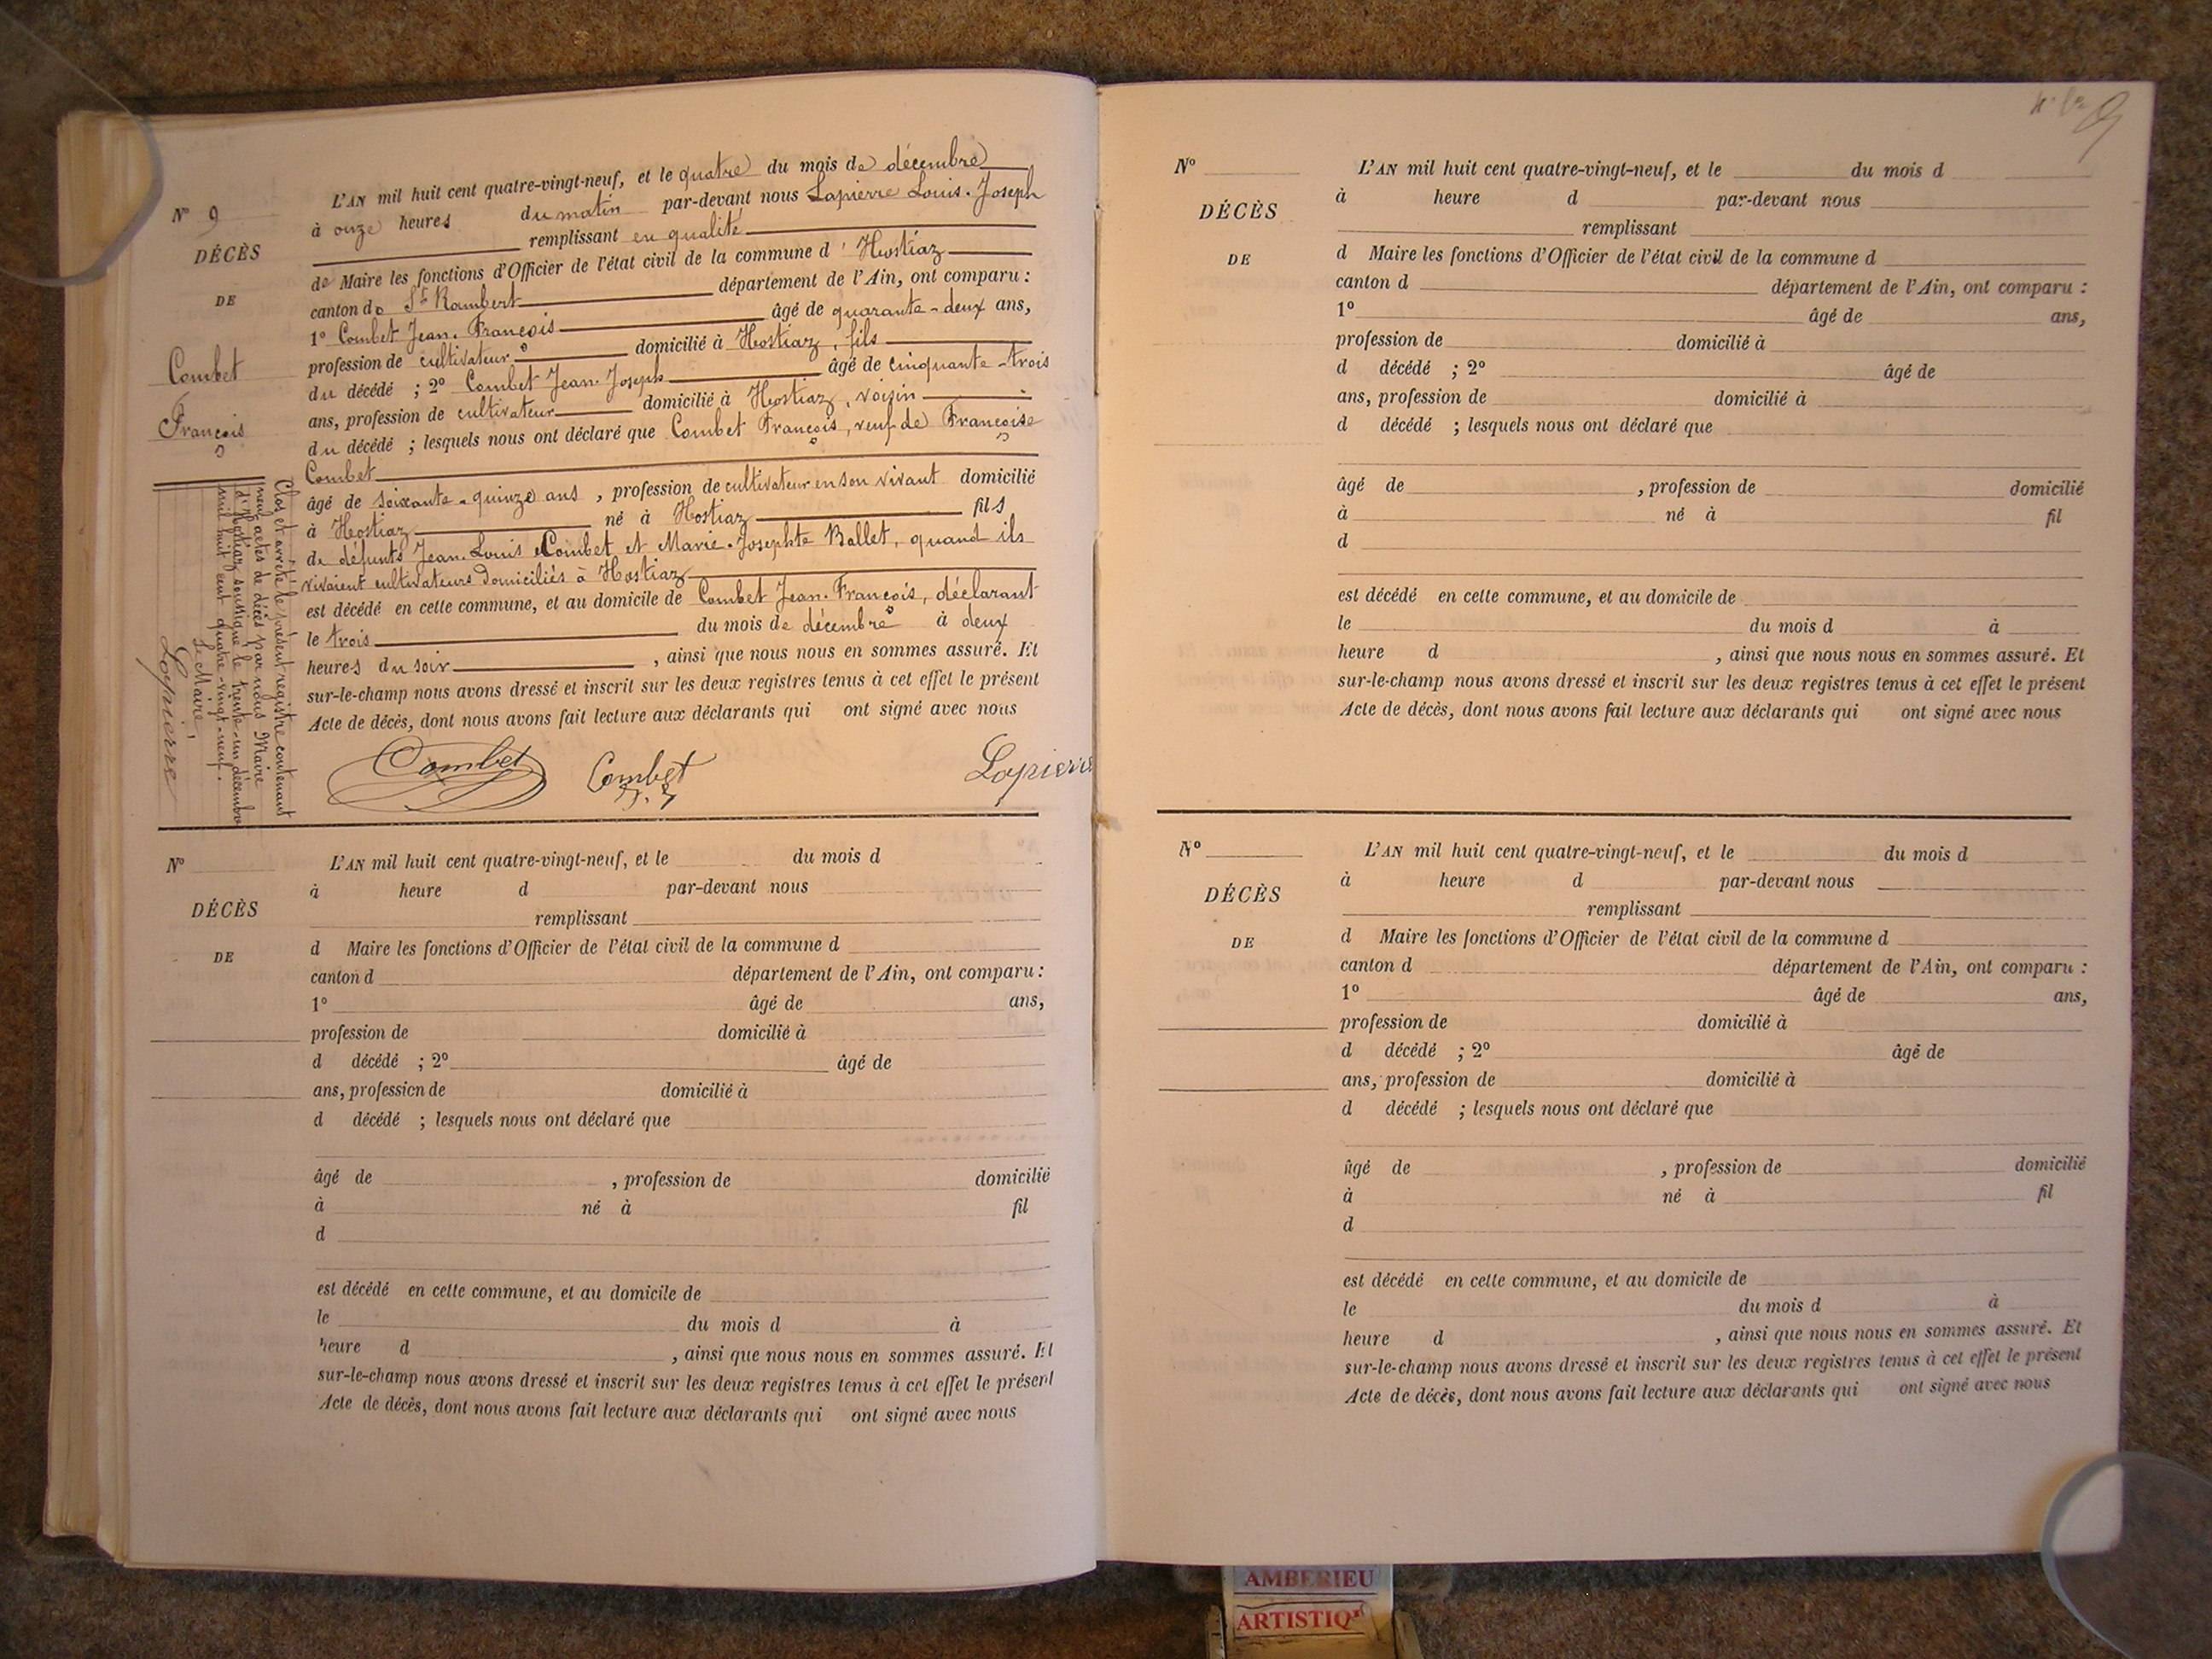 N° 9
DÉCÈS
DE
Combet
François
L'AN mil huit cent quatre-vingt-neuf, et le quatre du mois de décembre
à onze heures du matin par-devant nous Lapierre Louis-Joseph
remplissant en qualité
de Maire les fonctions d'Officier de l'état civil de la commune d'Hostiaz
canton de St Rambert département de l'Ain, ont comparu :
1° Combet Jean-François âgé de quarante-deux ans,
profession de cultivateur domicilié à Hostiaz, fils
du décédé ; 2° Combet Jean-Joseph âgé de cinquante-trois
ans, profession de cultivateur domicilié à Hostiaz, voisin
du décédé ; lesquels nous ont déclaré que Combet François, veuf de Françoise
Combet
âgé de soixante-quinze ans, profession de cultivateur en son vivant domicilié
à Hostiaz né à Hostiaz fils
de défunts Jean-Louis Combet et Marie-Josephte Ballet, quand ils
vivaient cultivateurs domiciliés à Hostiaz
est décédé en cette commune, et au domicile de Combet Jean-François, déclarant
le trois du mois de décembre à deux
heures du soir, ainsi que nous nous en sommes assuré. Et
sur-le-champ nous avons dressé et inscrit sur les deux registres tenus à cet effet le présent
Acte de décès, dont nous avons fait lecture aux déclarants qui ont signé avec nous
Combet Combet Lapierre
Clos et arrêté le présent registre contenant
neuf actes de décès par nous Maire
d'Hostiaz soussigné le trente-un décembre
mil huit cent quatre-vingt-neuf.
Le Maire,
Lapierre
N°
DÉCÈS
DE
L'AN mil huit cent quatre-vingt-neuf, et le du mois d
à heure d par-devant nous
remplissant
d Maire les fonctions d'Officier de l'état civil de la commune d
canton d département de l'Ain, ont comparu :
1° âgé de ans,
profession de domicilié à
d décédé ; 2° âgé de
ans, profession de domicilié à
d décédé ; lesquels nous ont déclaré que
âgé de , profession de domicilié
à né à fil
d
est décédé en cette commune, et au domicile de
le du mois d à
heure d , ainsi que nous nous en sommes assuré. Et
sur-le-champ nous avons dressé et inscrit sur les deux registres tenus à cet effet le présent
Acte de décès, dont nous avons fait lecture aux déclarants qui ont signé avec nous
N°
DÉCÈS
DE
L'AN mil huit cent quatre-vingt-neuf, et le du mois d
à heure d par-devant nous
remplissant
d Maire les fonctions d'Officier de l'état civil de la commune d
canton d département de l'Ain, ont comparu :
1° âgé de ans,
profession de domicilié à
d décédé ; 2° âgé de
ans, profession de domicilié à
d décédé ; lesquels nous ont déclaré que
âgé de , profession de domicilié
à né à fil
d
est décédé en cette commune, et au domicile de
le du mois d à
heure d , ainsi que nous nous en sommes assuré. Et
sur-le-champ nous avons dressé et inscrit sur les deux registres tenus à cet effet le présent
Acte de décès, dont nous avons fait lecture aux déclarants qui ont signé avec nous
N°
DÉCÈS
DE
L'AN mil huit cent quatre-vingt-neuf, et le du mois d
à heure d par-devant nous
remplissant
d Maire les fonctions d'Officier de l'état civil de la commune d
canton d département de l'Ain, ont comparu :
1° âgé de ans,
profession de domicilié à
d décédé ; 2° âgé de
ans, profession de domicilié à
d décédé ; lesquels nous ont déclaré que
âgé de , profession de domicilié
à né à fil
d
est décédé en cette commune, et au domicile de
le du mois d à
heure d , ainsi que nous nous en sommes assuré. Et
sur-le-champ nous avons dressé et inscrit sur les deux registres tenus à cet effet le présent
Acte de décès, dont nous avons fait lecture aux déclarants qui ont signé avec nous
AMBERIEU
ARTISTIQ